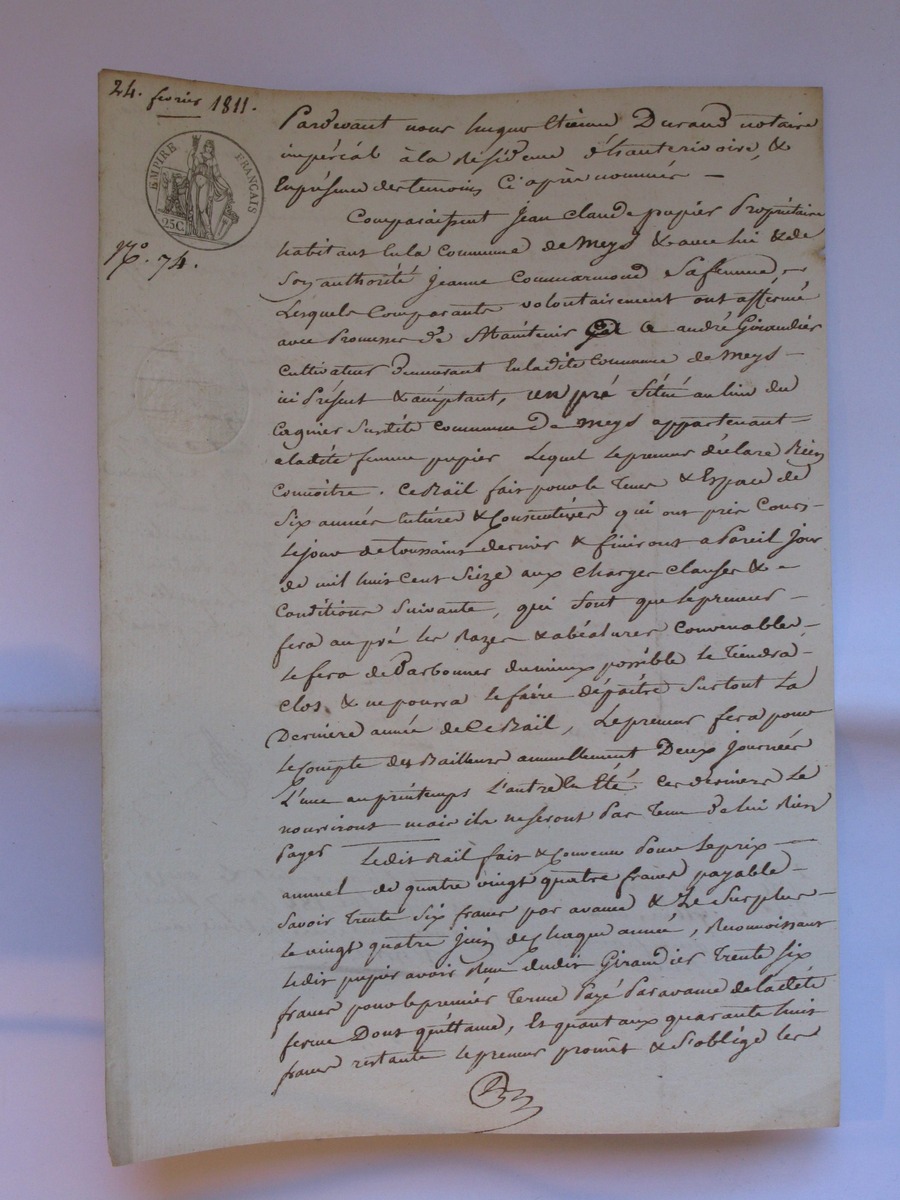 24. fevrier 1811.
EMPIRE FRANÇAIS
25C
N.º 74.
Pardevant nous hugue Etienne Durand notaire
impérial à la Résidence d'hauterivoire, &
En présence des temoins Ci après nommés —
Comparaissent Jean Claude papier Propriétaire
habitant En la Commune de Meys & avec lui & de
Son authorité Jeanne Commarmond Sa femme, —
Lesquels Comparants volontairement ont affermé
avec Promesse de Maintenir à andré Girandier
Cultivateur Demeurant En ladite Commune de Meys —
ici Présent & acceptant, un pré Situé au lieu du
Cagnier Surdite Commune de Meys appartenant —
a ladite femme papier Lequel Le preneur déclare Bien
Connoitre. Ce Bail fait pour le Tems & Espace de
Six années Entières & Consecutives qui ont pris Cours —
Le jour de toussaint dernier & finiront a Pareil Jour
de mil huit Cent Seize aux Charges Clauses & —
Conditions Suivantes, qui Sont que Le preneur —
fera au pré les Razes & abéalures Convenables, —
Le fera de Barbonner du mieux possible Le Tiendra —
Clos & ne pourra Le faire dépaitre Surtout La
Dernière année de Ce Bail, Le preneur fera pour
Le Compte des Bailleurs annuellement Deux journées
L'une au printemps L'autre En Eté Ces derniers Le
nourriront mais ils ne Seront Pas Tenu de lui Rien
Payer Ledit Bail fait & Convenu Pour Le prix —
annuel de quatre vingt quatre francs payable —
Savoir Trente Six francs par avance & Le Surplus —
Le vingt quatre Juin de Chaque année, Reconnoissant
Ledit papier avoir Reçu dudit Girandier Trente Six
francs pour le premier Terme Payé Par avance de ladite
ferme Dont quittance, Et quant aux quarante huit
francs restants Le preneur promet & S'oblige les